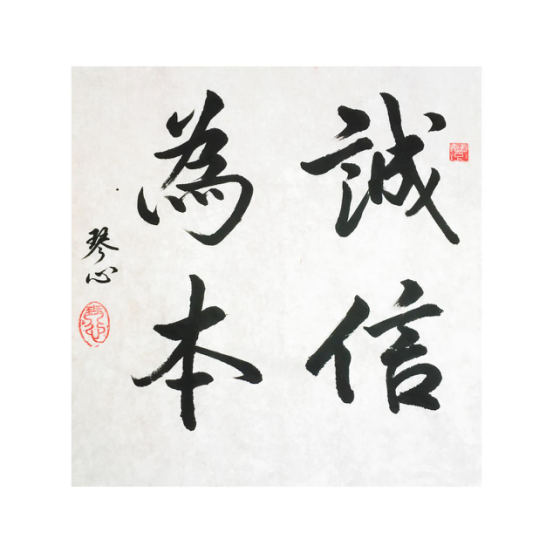 誠信
為本
琴心